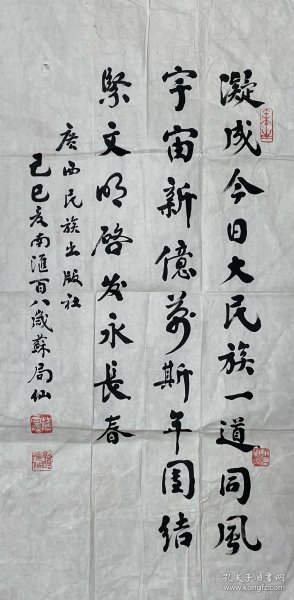 凝成今日大民族一道同風
宇宙新億萬斯年團結
緊文明啓发永長春
广西民族出版社
己巳夏南滙百八歲蘇局仙
孔夫子旧书网